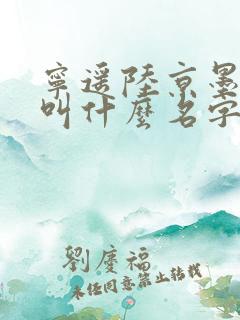 寧遥陸京墨
叫什麼名字
劉慶福
未经同意禁止转载